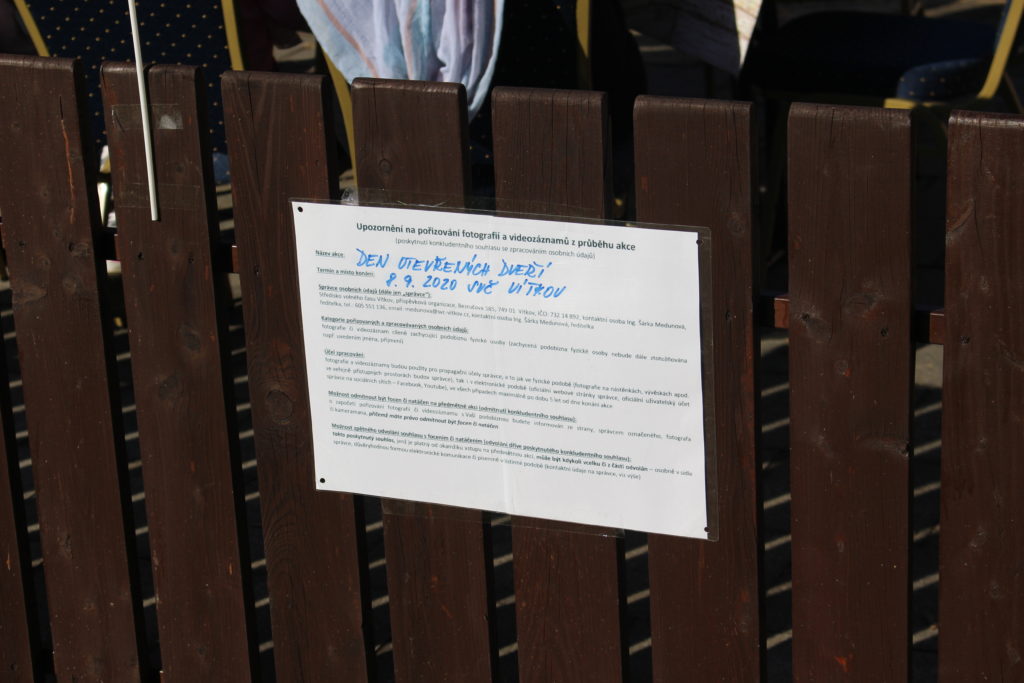 Upozornění na pořizování fotografií a videozáznamů z průběhu akce
(poskytnutí konkludentního souhlasu se zpracováním osobních údajů)
Název akce: DEN OTEVŘENÝCH DVEŘÍ
Termín a místo konání: 8. 9. 2020 SVČ VÍTKOV
Správce osobních údajů (dále jen „správce"):
Středisko volného času Vítkov, příspěvková organizace, Bezručova 585, 749 01 Vítkov, IČO: 732 14 892, kontaktní osoba Ing. Šárka Medunová,
ředitelka, tel.: 605 551 136, email: medunova@svc-vitkov.cz, kontaktní osoba Ing. Šárka Medunová, ředitelka
Kategorie pořizovaných a zpracovávaných osobních údajů:
fotografie či videozáznam cíleně zachycující podobiznu fyzické osoby (zachycená podobizna fyzické osoby nebude dále ztotožňována
např. uvedením jména, příjmení)
Účel zpracování:
fotografie a videozáznamy budou použity pro propagační účely správce, a to jak ve fyzické podobě (fotografie na nástěnkách, vývěskách apod.
ve veřejně přístupných prostorách budov správce), tak i v elektronické podobě (oficiální webové stránky správce, oficiální uživatelský účet
správce na sociálních sítích – Facebook, Youtube), ve všech případech maximálně po dobu 5 let od dne konání akce
Možnost odmítnout být focen či natáčen na předmětné akci (odmítnutí konkludentního souhlasu):
o započetí pořizování fotografií či videozáznamu s Vaší podobiznou budete informován ze strany, správcem označeného, fotografa
či kameramana, přičemž máte právo odmítnout být focen či natáčen
Možnost zpětného odvolání souhlasu s focením či natáčením (odvolání dříve poskytnutého konkludentního souhlasu):
takto poskytnutý souhlas, jenž je platný od okamžiku vstupu na předmětnou akci, může být kdykoli vcelku či z části odvolán – osobně v sídle
správce, důvěryhodnou formou elektronické komunikace či písemně v listinné podobě (kontaktní údaje na správce, viz výše)